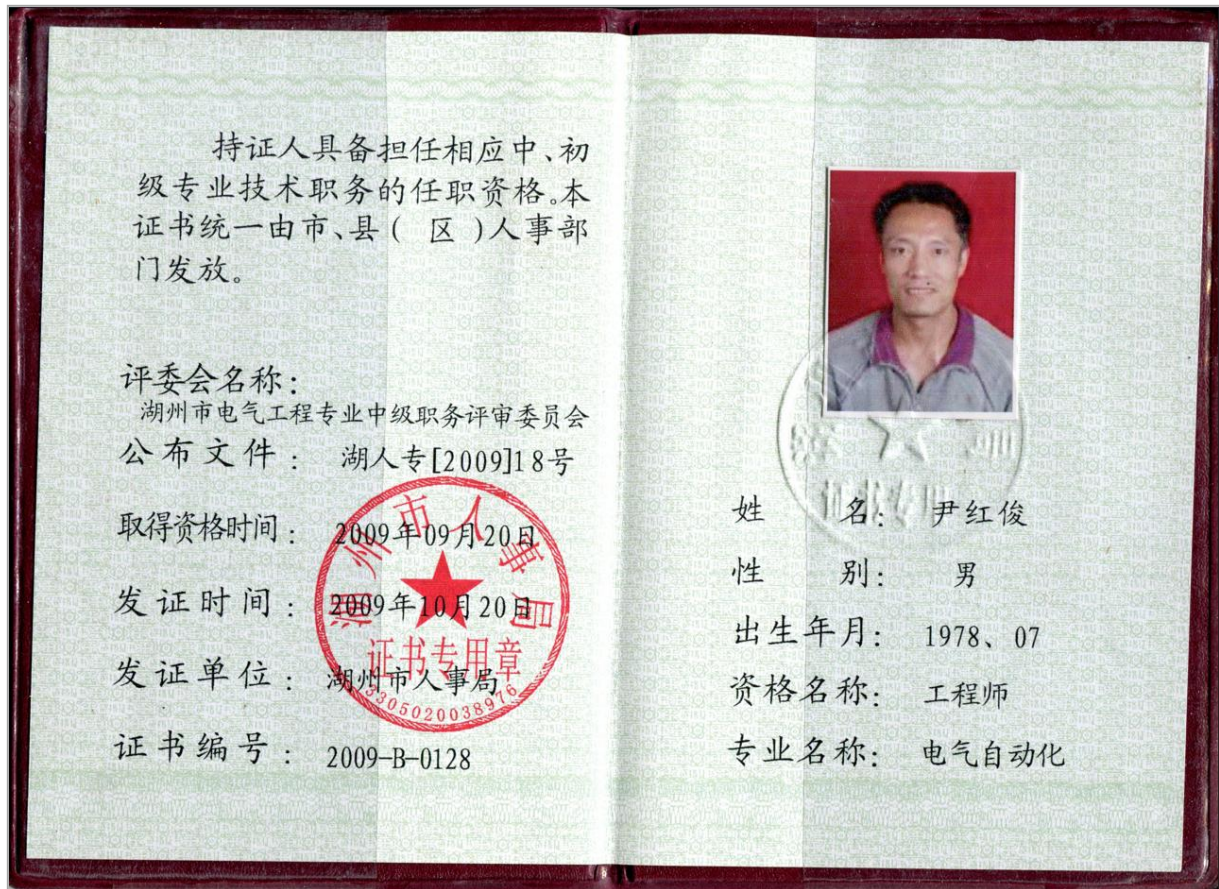 持证人具备担任相应中、初
级专业技术职务的任职资格。本
证书统一由市、县(区)人事部
门发放。
评委会名称:
湖州市电气工程专业中级职务评审委员会
公布文件: 湖人专[2009]18号
取得资格时间: 2009年09月20日
发证时间: 2009年10月20日
发证单位: 湖州市人事局
证书编号: 2009-B-0128
湖州市人事局
证书专用章
3305020038976
证书专用
姓名: 尹红俊
性别: 男
出生年月: 1978、07
资格名称: 工程师
专业名称: 电气自动化